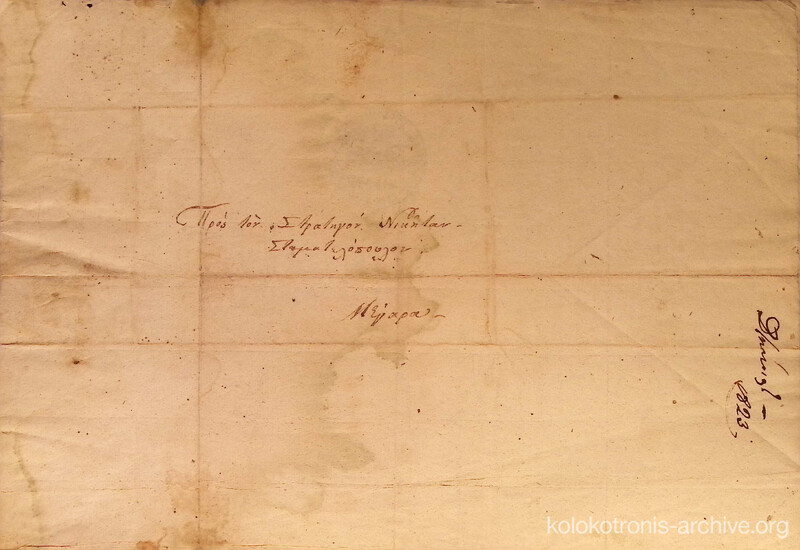 Πρὸς τὸν Στρατηγὸν Νικήταν
Σταματελόπουλον
Μέγαρα
1823
kolokotronis-archive.org